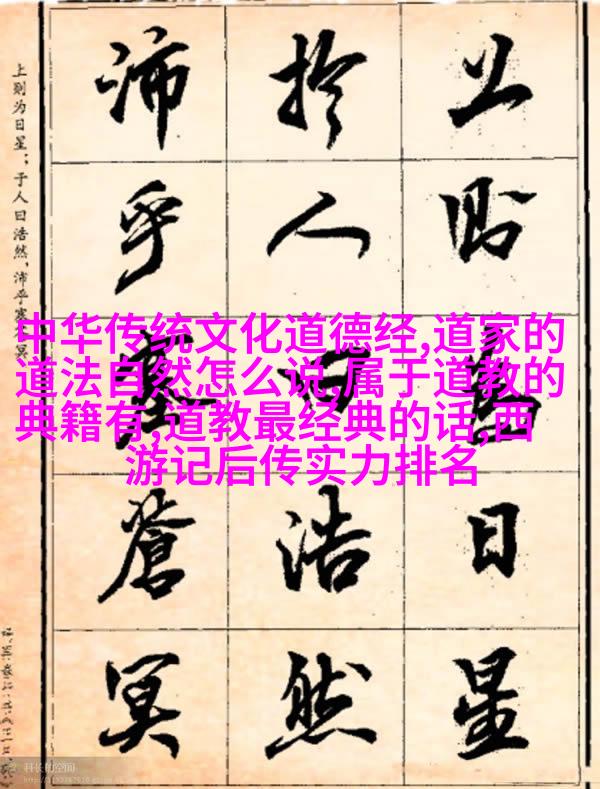 上則為日星
於人曰浩然
沛乎塞蒼冥
上则为日星;于人曰浩然,沛乎塞冥
中华传统文化道德经,道家的
道法自然怎么说,属于道教的
典籍有,道教最经典的话,西
游记后传实力排名
科长的空间